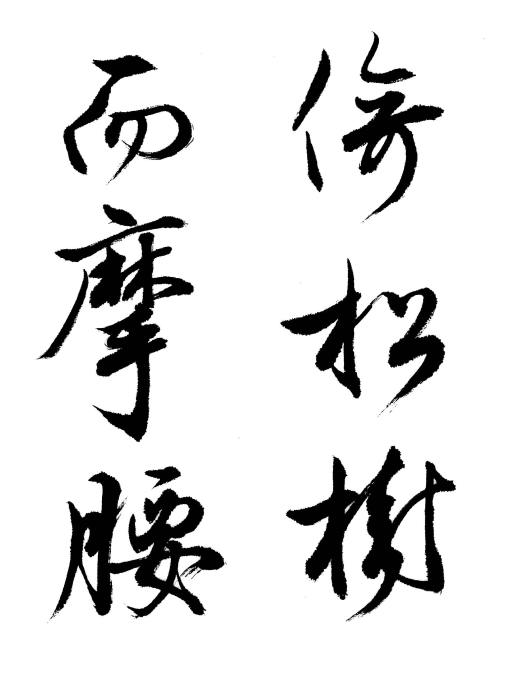 倚松樹
而摩腰